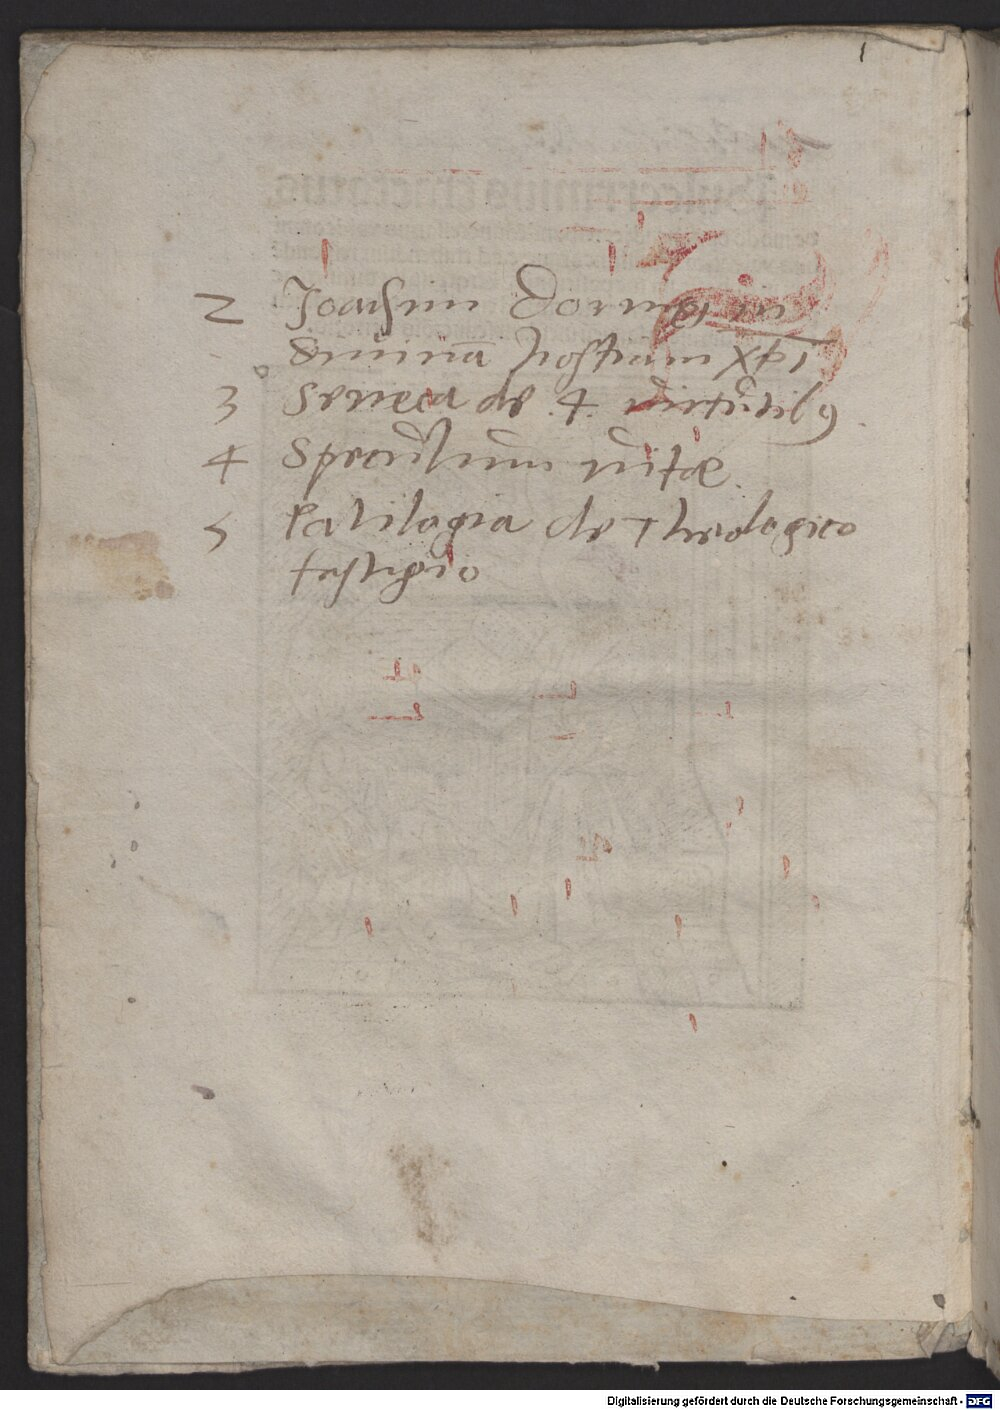 1
2 Joachim in
diuinā hostiam Xp̄i
3 Seneca de .4. uirtutibꝰ
4 Speculum uitæ
5 de theologico
fastigio
Digitalisierung gefördert durch die Deutsche Forschungsgemeinschaft - DFG